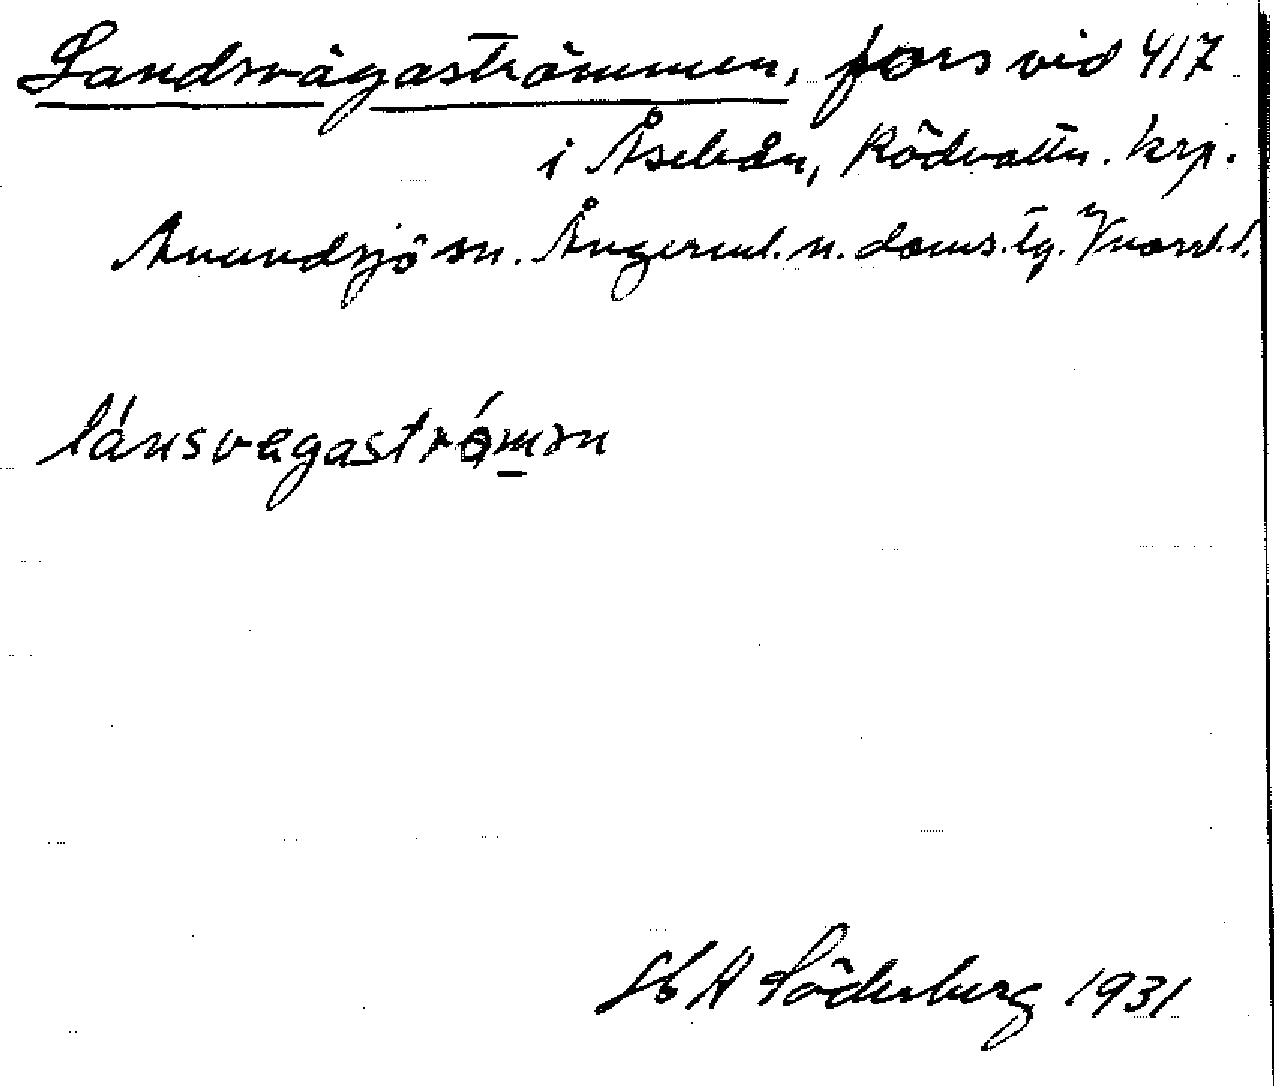 Landsvägaströmmen, fors vid 417
i Åseleån, Rödvattn. krp.
Anundsjö sn. Ångerml. n. doms. tg. Vnorrl. l.
lánsvegastrómən
Söderberg 1931